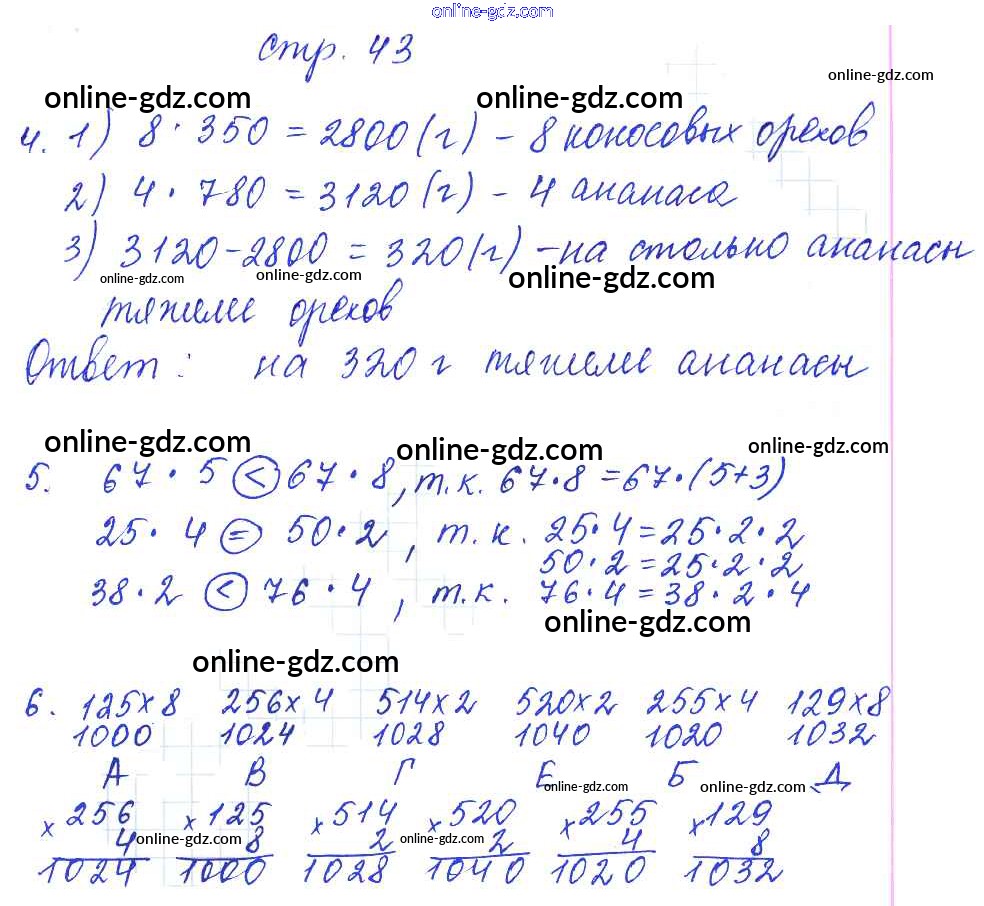 online-gdz.com
стр. 43
online-gdz.com
online-gdz.com online-gdz.com
4. 1) 8 · 350 = 2800 (г) - 8 кокосовых орехов
2) 4 · 780 = 3120 (г) - 4 ананаса
3) 3120 - 2800 = 320 (г) - на столько ананасы
online-gdz.com online-gdz.com online-gdz.com
тяжелее орехов
Ответ: на 320 г тяжелее ананасы
online-gdz.com online-gdz.com online-gdz.com
5. 67 · 5 < 67 · 8, т.к. 67 · 8 = 67 · (5+3)
25 · 4 = 50 · 2, т.к. 25 · 4 = 25 · 2 · 2
50 · 2 = 25 · 2 · 2
38 · 2 < 76 · 4, т.к. 76 · 4 = 38 · 2 · 4
online-gdz.com
online-gdz.com
6. 125 x 8 256 x 4 514 x 2 520 x 2 255 x 4 129 x 8
1000 1024 1028 1040 1020 1032
А В Г Е Б Д
online-gdz.com online-gdz.com
x 256 x 125 x 514 x 520 x 255 x 129
4 8 2 2 4 8
online-gdz.com online-gdz.com
1024 1000 1028 1040 1020 1032